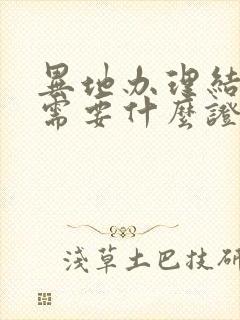 異地办理結
需要什麼證
淺草土巴技研